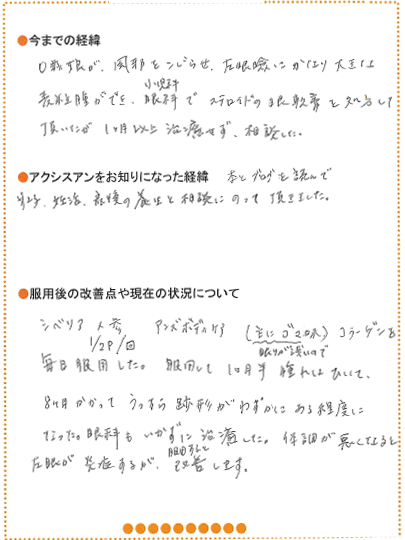 ●今までの経緯
0歳娘が、風邪をこじらせ、左眼瞼にかなり大きな
小児科
霰粒腫ができ、眼科でステロイドの眼軟膏を処方して
頂いたが1ヶ月以上治癒せず、相談した。
●アクシスアンをお知りになった経緯 本とブログを読んで
妊活、産後の養生と相談にのって頂きました。
●服用後の改善点や現在の状況について
シベリア人参 アンズボディケア (主にゴマ味)コラーゲンを
1/2P/回 眠りが浅いので
毎日服用した。服用して1ヶ月半腫れはひいて、
8ヶ月かかってうっすら跡形がわずかにある程度に
なった。眼科もいかずに治癒した。体調が悪くなると
服用すると
左眼が炎症するが、改善します。